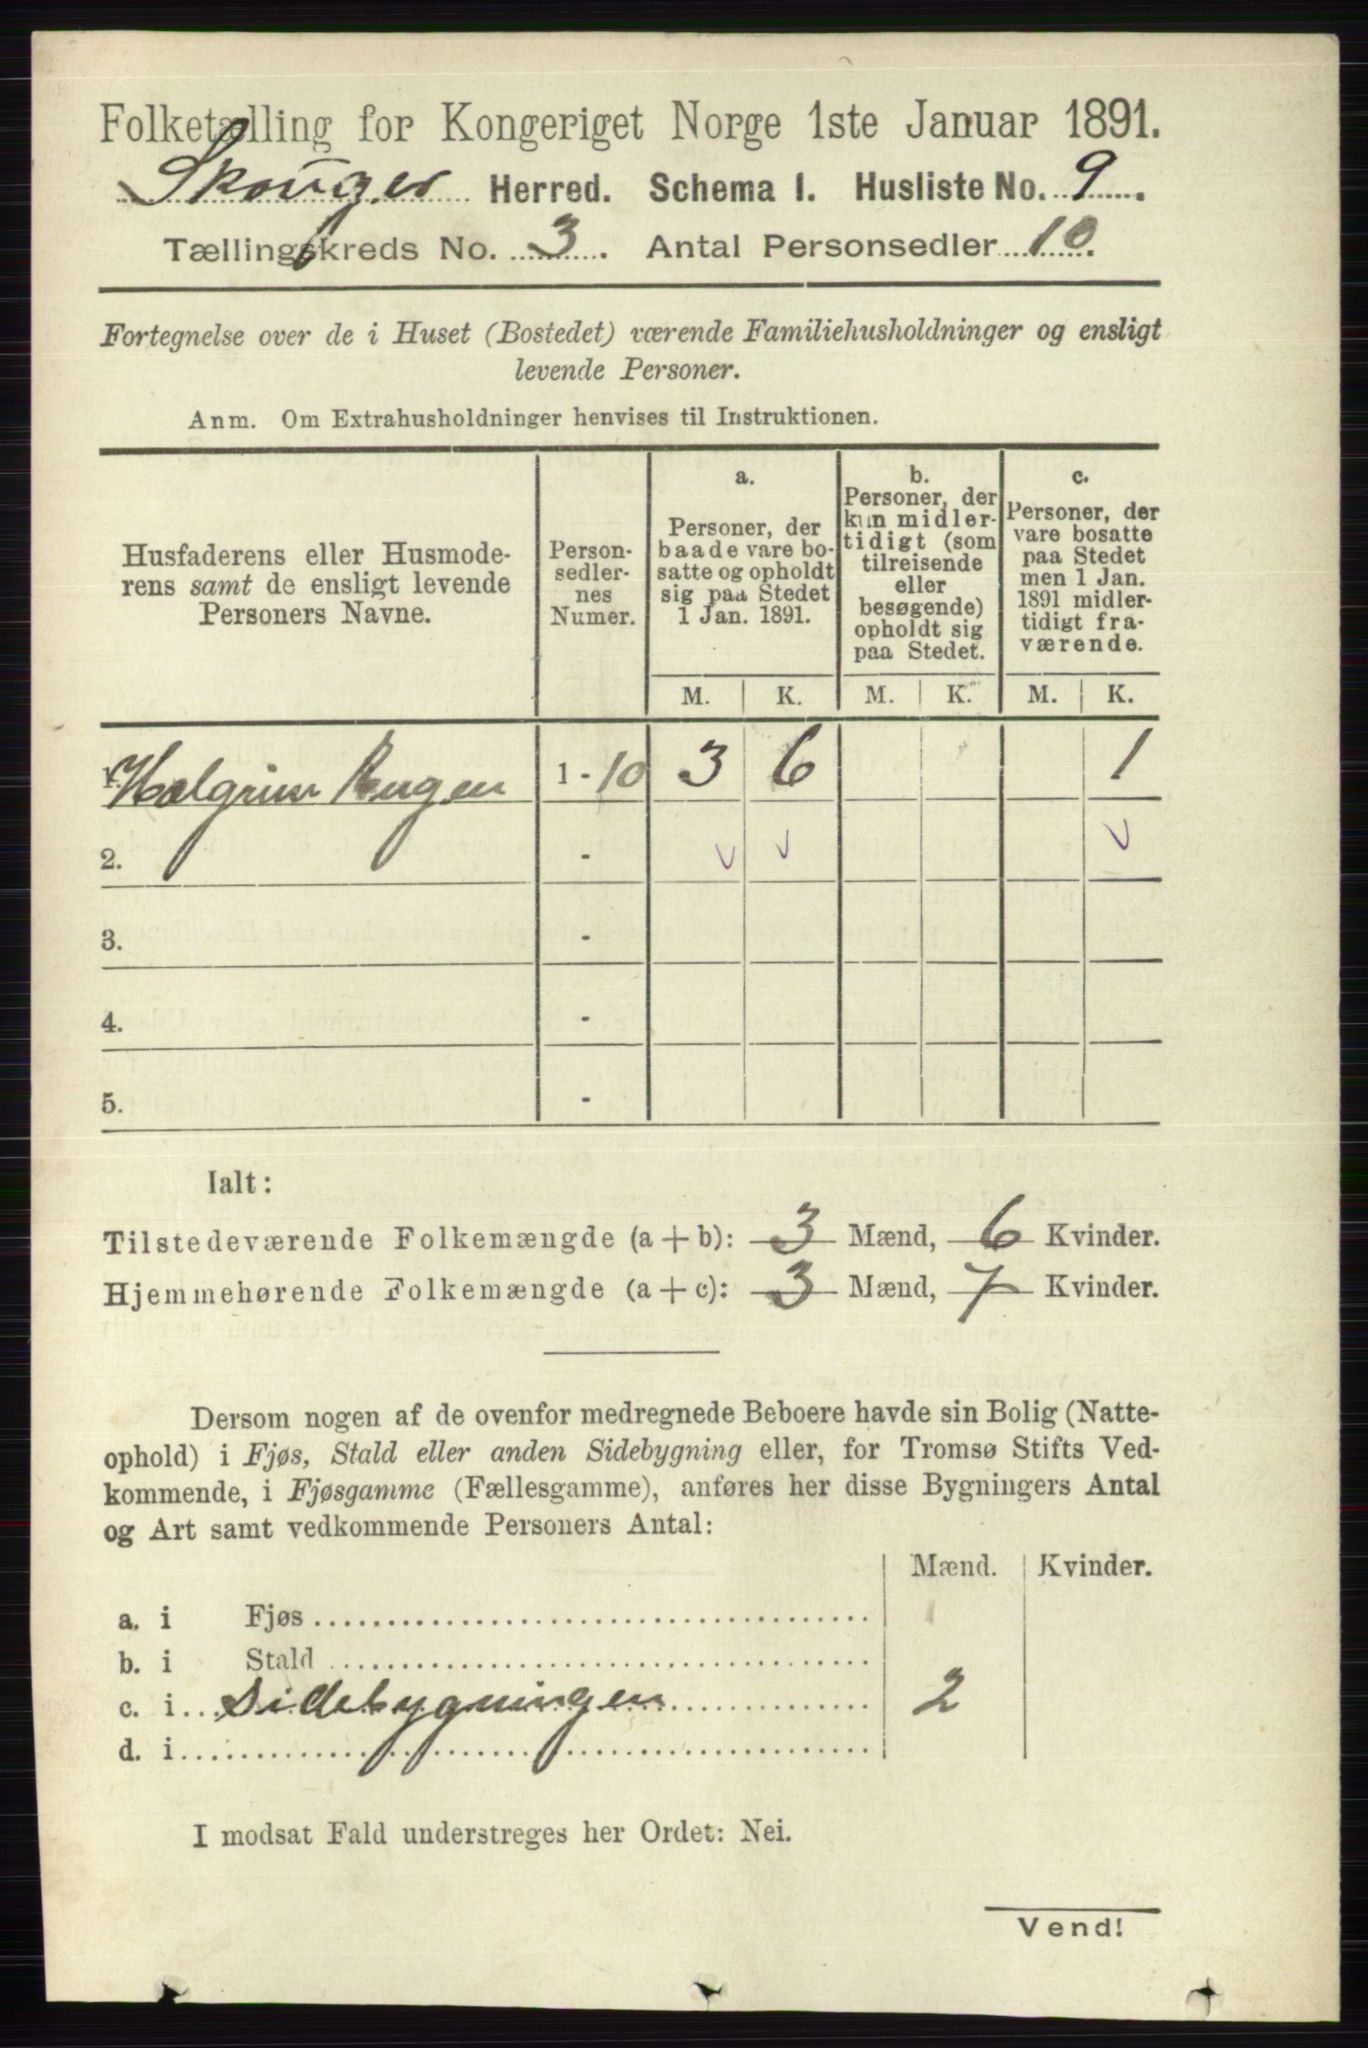 Folketælling for Kongeriget Norge 1ste Januar 1891.
Skouger Herred. Schema I. Husliste No. 9.
Tællingskreds No. 3. Antal Personsedler 10.
Fortegnelse over de i Huset (Bostedet) værende Familiehusholdninger og ensligt
levende Personer.
Anm. Om Extrahusholdninger henvises til Instruktionen.
Husfaderens eller Husmode-
rens samt de ensligt levende
Personers Navne.
Person-
sedler-
nes
Numer.
a.
Personer, der
baade vare bo-
satte og opholdt
sig paa Stedet
1 Jan. 1891.
b.
Personer, der
kun midler-
tidigt (som
tilreisende
eller
besøgende)
opholdt sig
paa Stedet.
c.
Personer, der
vare bosatte
paa Stedet
men 1 Jan.
1891 midler-
tidigt fra-
værende.
M. K. M. K. M. K.
1. 1 - 10 3 6 1
2. -
3. -
4. -
5. -
Ialt:
Tilstedeværende Folkemængde (a + b): 3 Mænd, 6 Kvinder.
Hjemmehørende Folkemængde (a + c): 3 Mænd, 7 Kvinder.
Dersom nogen af de ovenfor medregnede Beboere havde sin Bolig (Natte-
ophold) i Fjøs, Stald eller anden Sidebygning eller, for Tromsø Stifts Ved-
kommende, i Fjøsgamme (Fællesgamme), anføres her disse Bygningers Antal
og Art samt vedkommende Personers Antal:
Mænd. Kvinder.
a. i Fjøs
b. i Stald
c. i Sidebygningen 2
d. i
I modsat Fald understreges her Ordet: Nei.
Vend!